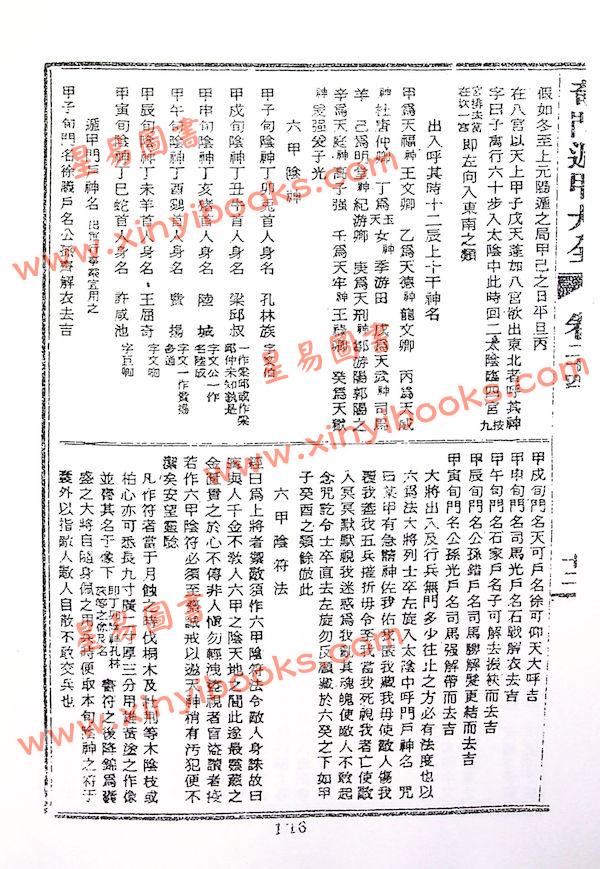 奇門遁甲大全 卷二十四 十二
假如冬至上元陽遁之局甲己之日平旦丙
在八宮以天上甲子戊天蓬加八宮欲出東北者呼其神
字曰子禹行六十步入太陰中此時回二太陰臨四宮
在坎一宮 即左向入東南之類
出入呼其時十二辰上十干神名
甲為天福神王文卿 乙為天德神龍文卿 丙為天威
神唐仲卿 丁為玉女神季游田 戊為天武神司馬
羊 己為明堂神紀游卿 庚為天刑神鄒游陽郭陽之
辛為天庭神高子强 壬為天牢神王祿卿 癸為天獄
神爰强爰子光
六甲陰神
甲子旬陰神丁卯兔首人身名 孔林族 字文伯
甲戌旬陰神丁丑牛首人身名 梁邱叔
甲申旬陰神丁亥豬首人身名 陸城 字文公一作名陸成
甲午旬陰神丁酉雞首人身名 費揚 字文一作費陽多通
甲辰旬陰神丁未羊首人身名 王屈奇 字文
甲寅旬陰神丁巳蛇首人身名 許咸池 字巨
遁甲門戶神名
甲子旬門名徐議戶名公孫齊解衣去吉
甲戌旬門名天可戶名徐可仰天大呼吉
甲申旬門名司馬光戶名石戰解衣去吉
甲午旬門名石家戶名子可解去裖袂而去吉
甲辰旬門名公孫錯戶名司馬勝解髮更結而去吉
甲寅旬門名公孫光戶名司馬强解帶而去吉
大將出入及行兵無門多少往止之方必有法度也以
六為法大將列士卒左旋入太陰中呼門戶神名 咒
曰某甲有急請神佐我佑我無我毋使敵人傷我
覆我蓋我五兵摧折毋令至我當我死視我者亡使敵
人冥冥默默視我迷惑為我亂其魂魄使敵人不敢起
念咒訖令士卒直去左旋勿反顧藏於六癸之下如甲
子癸酉之類餘倣此
六甲陰符法
經曰為上將者禦敵須作六甲陰符法令敵人身誅故曰
與人千金不敎人六甲之陰天地之間此達最靈叢之
金匱貴之於心不傳非人愼勿輕洩妄視者盲盜讀者疫
若作六甲陰符必須至誠戒以避六神稍有汚犯便不
潔矣安望靈驗
凡作符者當于月蝕之時伐桐木及杜荆等木陰枝或
柏心亦可悉長九寸廣二寸厚三分用雌黃塗之作像
並書其名于像下 即丁卯陰神孔林族等之餘是也 書符之後降錦為囊
盛之大將自隨身佩之用兵時便取本旬陰神之符于
囊外以指敵人敵人自散不敢交兵也
1116
星易圖書
www.xinyibooks.com
星易圖書
www.xinyibooks.com
星易圖書
www.xinyibooks.com
星易圖書
www.xinyibooks.com